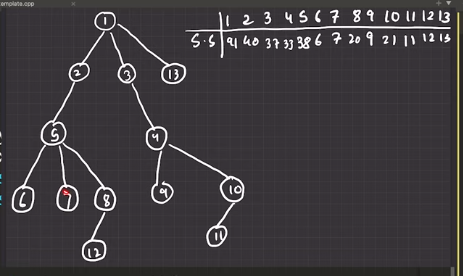 template.cpp
1 2 3 4 5 6 7 8 9 10 11 12 13
S.S 91 40 37 33 38 6 7 20 9 21 11 12 13
1
2 3 13
5 4
6 7 8 9 10
12 11